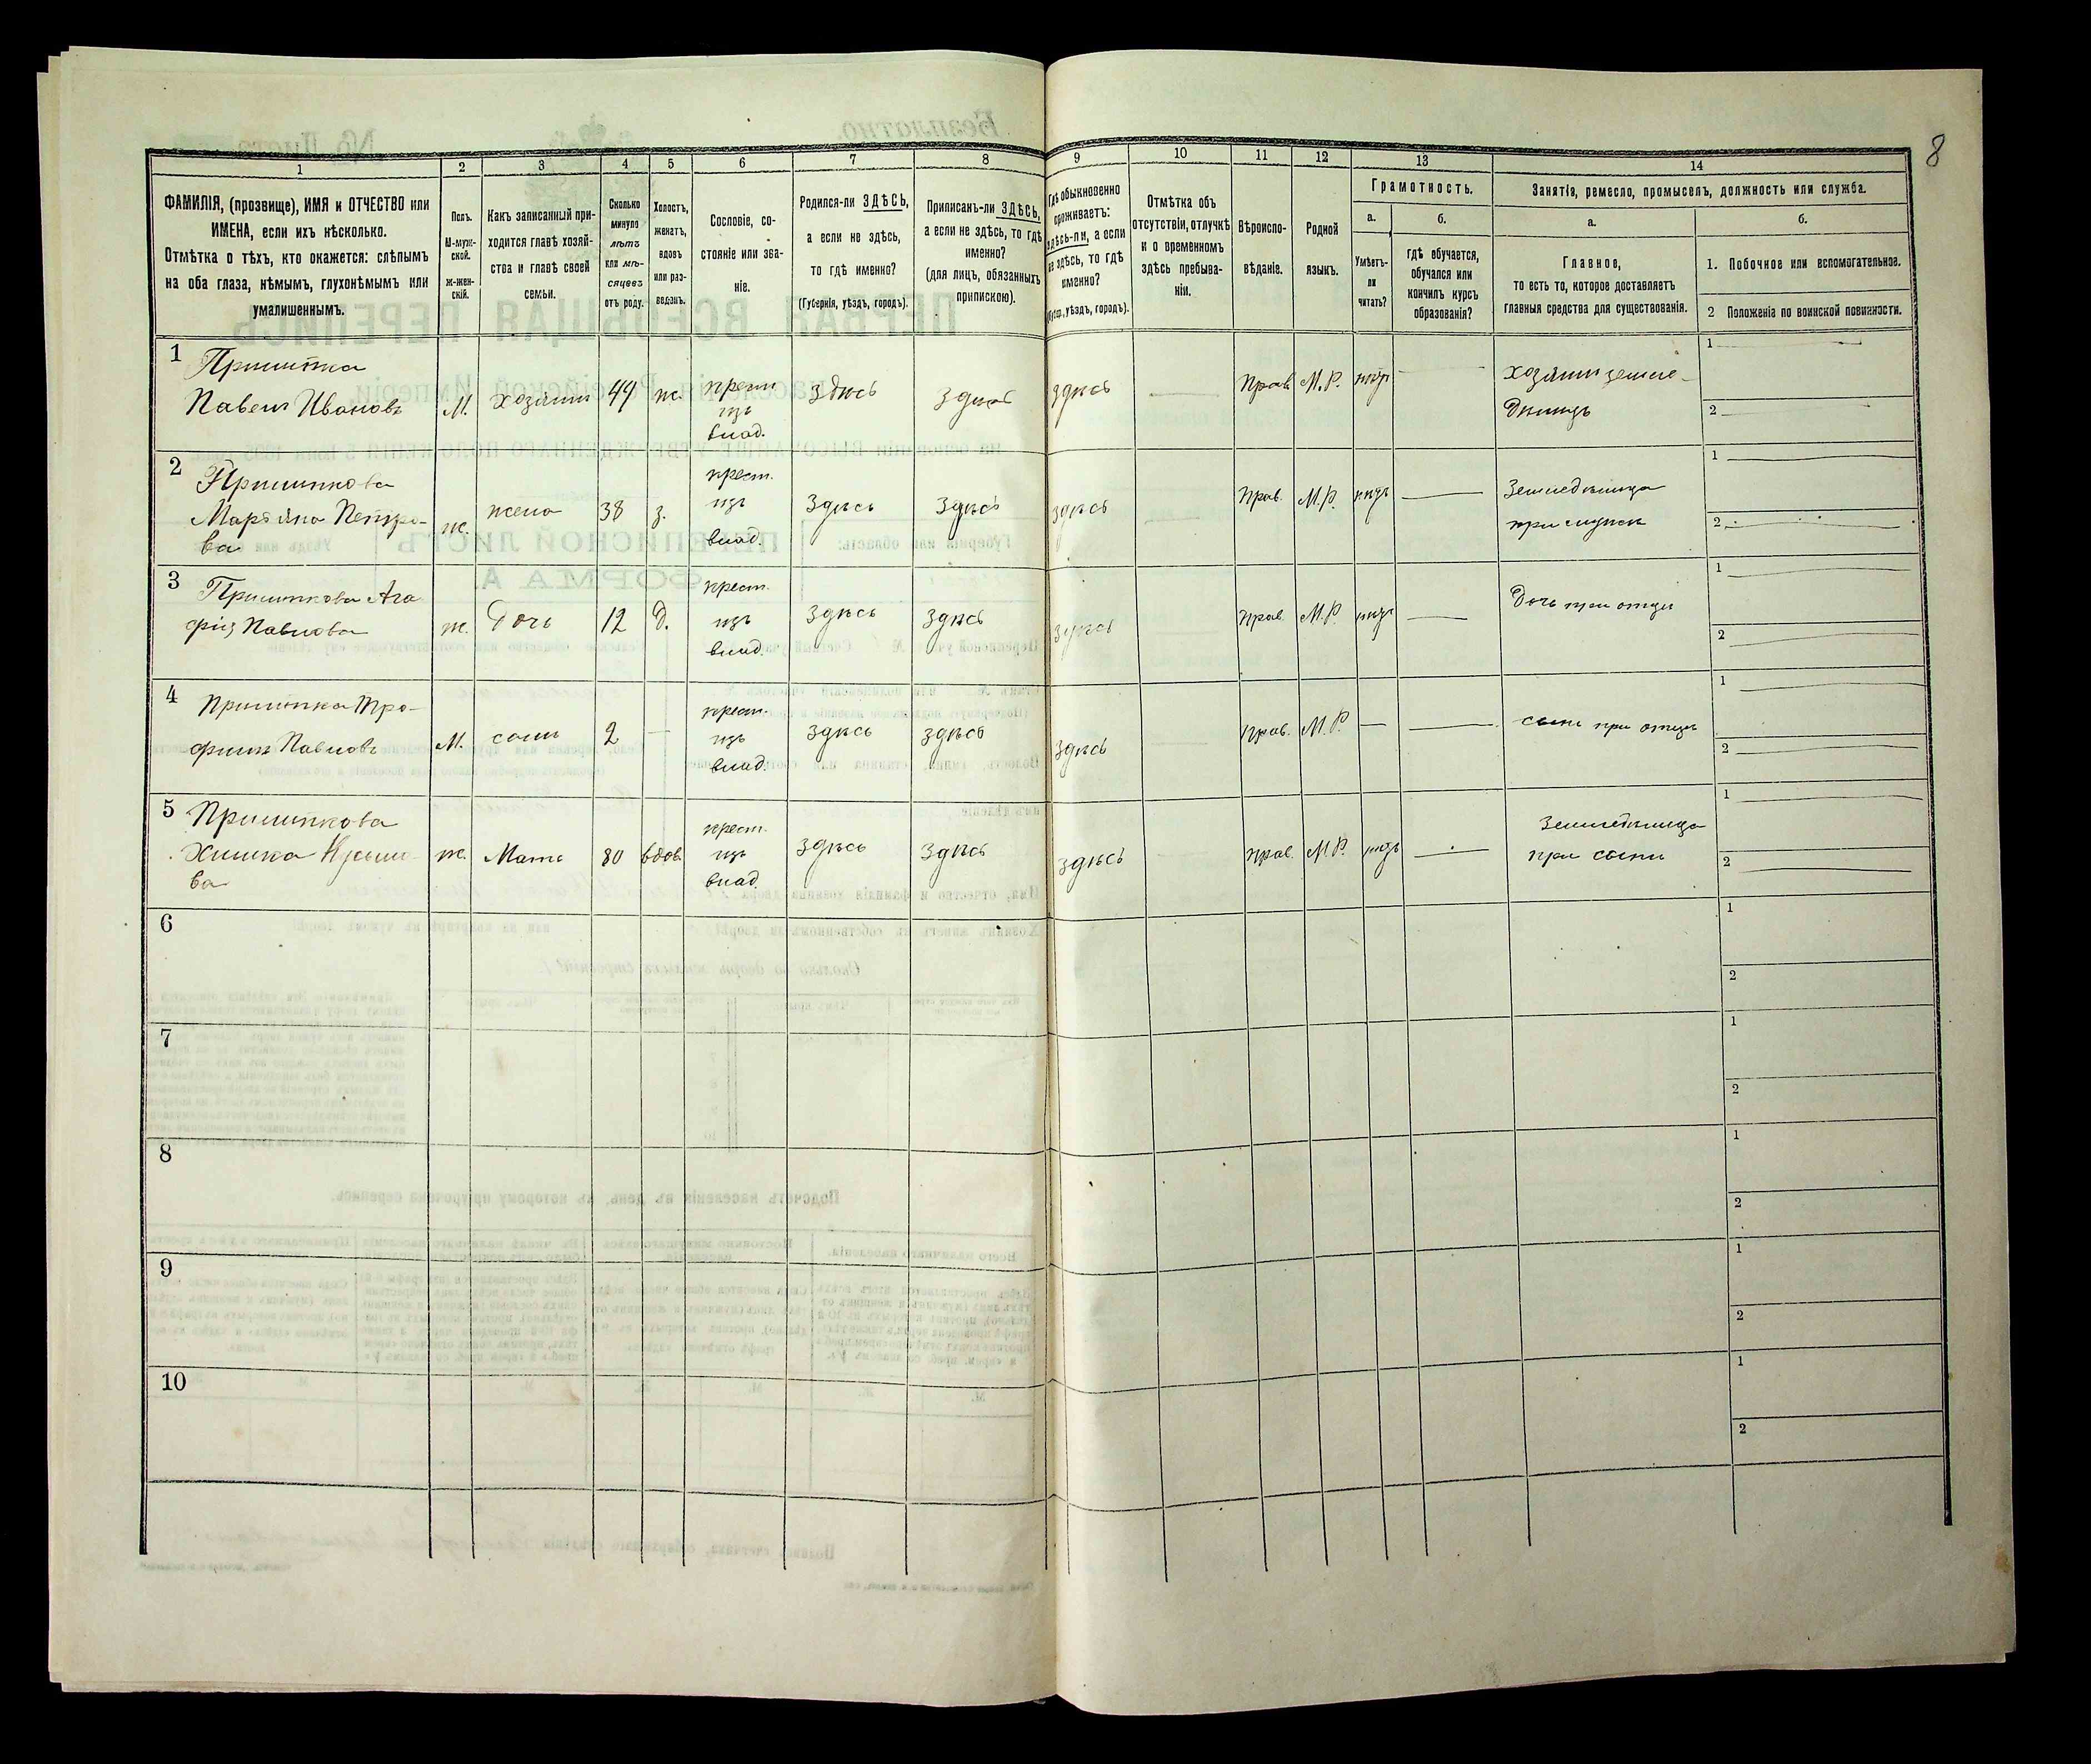 8
1 2 3 4 5 6 7 8 9 10 11 12 13 14
ФАМИЛІЯ, (прозвище), ИМЯ и ОТЧЕСТВО или
ИМЕНА, если ихъ нѣсколько.
Отмѣтка о тѣхъ, кто окажется: слѣпымъ
на оба глаза, нѣмымъ, глухонѣмымъ или
умалишеннымъ.
Полъ.
М-муж-
ской.
ж-жен-
скій.
Какъ записанный при-
ходится главѣ хозяй-
ства и главѣ своей
семьи.
Сколько
минуло
лѣтъ
или мѣ-
сяцевъ
отъ роду.
Холостъ,
женатъ,
вдовъ
или раз-
веденъ.
Сословіе, со-
стояніе или зва-
ніе.
Родился-ли ЗДѢСЬ,
а если не здѣсь,
то гдѣ именно?
(Губернія, уѣздъ, городъ).
Приписанъ-ли ЗДѢСЬ,
а если не здѣсь, то гдѣ
именно?
(для лицъ, обязанныхъ
припискою).
Гдѣ обыкновенно
проживаетъ:
здѣсь-ли, а если
не здѣсь, то гдѣ
именно?
(Губер., уѣздъ, городъ).
Отмѣтка объ
отсутствіи, отлучкѣ
и о временномъ
здѣсь пребыва-
ніи.
Вѣроиспо-
вѣданіе.
Родной
языкъ.
Грамотность.
а.
Умѣетъ-
ли
читать?
б.
гдѣ обучается,
обучался или
кончилъ курсъ
образованія?
Занятія, ремесло, промыселъ, должность или служба.
а.
Главное,
то есть то, которое доставляетъ
главныя средства для существованія.
б.
1. Побочное или вспомогательное.
2 Положеніе по воинской повинности.
1
Павелъ Ивановъ М. Хозяинъ 49 ж. крест. изъ влад. здѣсь здѣсь здѣсь — Прав. М.Р. — Хозяинъ земле-
дѣлецъ
1 —
2 —
2
Петро-
ва ж. жена 38 з. крест. изъ влад. Здѣсь Здѣсь здѣсь — Прав. М.Р. — Земледѣлица
при мужѣ
1 —
2 —
3 Ага
фія Павлова ж. Дочь 12 д. крест. изъ влад. здѣсь здѣсь здѣсь Прав. М.Р. — Дочь при отцѣ
1 —
2 —
4 Тро-
фимъ Павловъ М. сынъ 2 — крест. изъ влад. здѣсь здѣсь здѣсь Прав. М.Р. — — сынъ при отцѣ
1 —
2 —
5
ва ж. Мать 80 вдов. крест. изъ влад. здѣсь здѣсь здѣсь Прав. М.Р. — Земледѣлица
при сынѣ
1 —
2 —
6 1
2
7 1
2
8 1
2
9 1
2
10 1
2